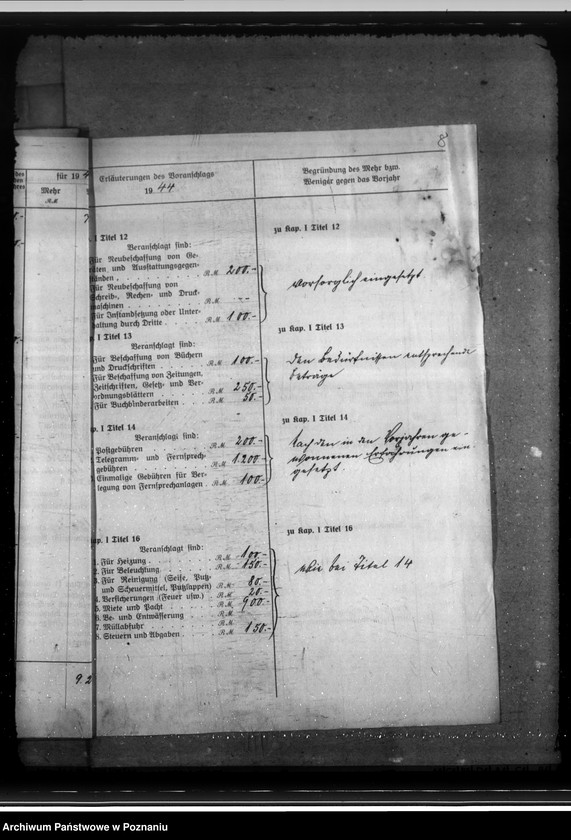 8
für 194
Mehr
RM
92
Erläuterungen des Voranschlags
1944
Begründung des Mehr bzw.
Weniger gegen das Vorjahr
. I Titel 12
Veranschlagt sind:
Für Neubeschaffung von Ge-
räten und Ausstattungsgegen-
ständen . . . . RM 200.-
Für Neubeschaffung von
Schreib-, Rechen- und Druck-
maschinen . . . . RM --
Für Instandsetzung oder Unter-
haltung durch Dritte . . . RM 100.-
zu Kap. I Titel 12
vorsorglich eingesetzt
. I Titel 13
Veranschlagt sind:
Für Beschaffung von Büchern
und Druckschriften . . . RM 100.-
Für Beschaffung von Zeitungen,
Zeitschriften, Gesetz- und Ver-
ordnungsblättern . . . RM 250.-
Für Buchbinderarbeiten . . RM 50.-
zu Kap. I Titel 13
den Bedürfnissen entsprechende
Beträge
p. I Titel 14
Veranschlagt sind:
Postgebühren . . . RM 200.-
Telegramm- und Fernsprech-
gebühren . . . . RM 1200.-
Einmalige Gebühren für Ver-
legung von Fernsprechanlagen . RM 100.-
zu Kap. I Titel 14
Nach den in den Vorjahren ge-
wonnenen Erfahrungen ein
gesetzt.
ap. I Titel 16
Veranschlagt sind:
1. Für Heizung . . . . RM 100.-
2. Für Beleuchtung . . . RM 150.-
3. Für Reinigung (Seife, Putz-
und Scheuermittel, Putzlappen) RM 80.-
4. Versicherungen (Feuer usw.) . RM 20.-
5. Miete und Pacht . . . RM 900.-
6. Be- und Entwässerung . . RM
7. Müllabfuhr . . . . RM
8. Steuern und Abgaben . . RM 150.-
zu Kap. I Titel 16
Wie bei Titel 14
Archiwum Państwowe w Poznaniu